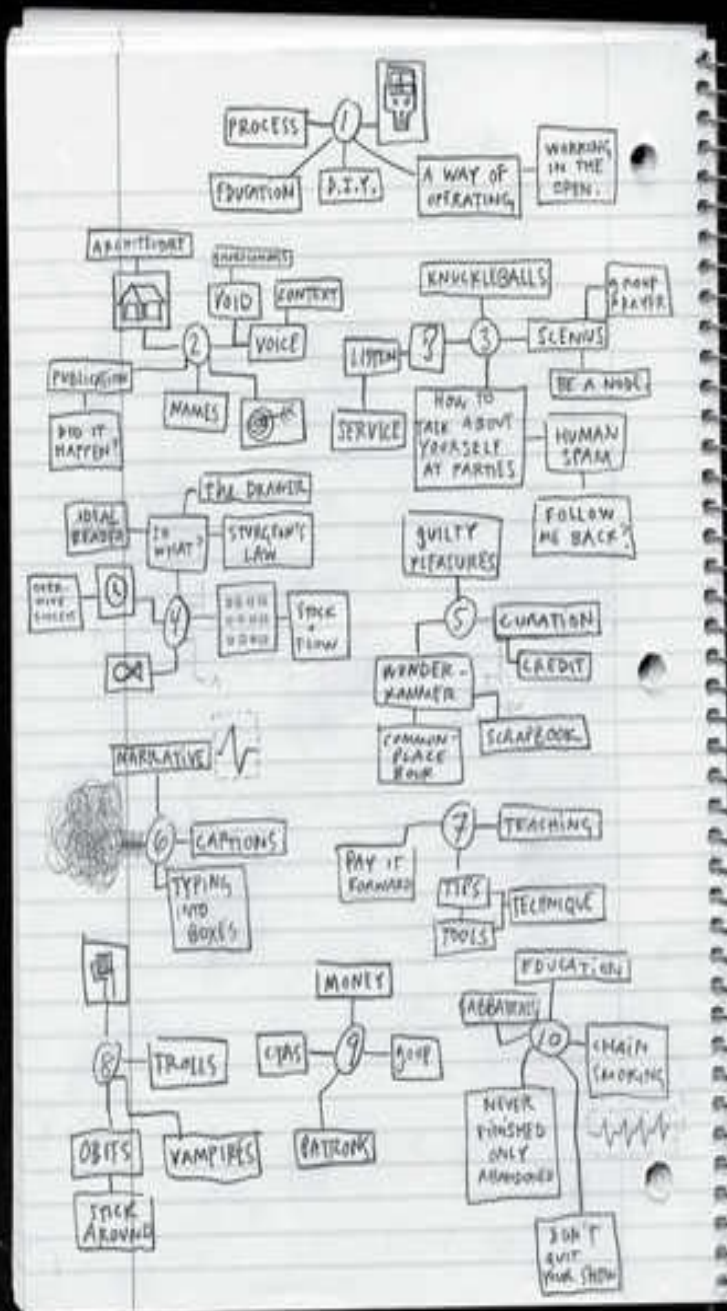 1
PROCESS
EDUCATION
D.I.Y.
A WAY OF
OPERATING
WORKING
IN THE
OPEN.
2
VOID
CONTEXT
VOICE
PUBLICATION
DID IT
HAPPEN?
NAMES
3
KNUCKLEBALLS
?
LISTEN
SERVICE
SCENIUS
GROUP
BE A NODE.
HOW TO
TALK ABOUT
YOURSELF
AT PARTIES
HUMAN
SPAM
FOLLOW
ME BACK?
4
THE DRAWER
IDEAL
READER
SO
WHAT?
STURGEON'S
LAW
STOCK
+
FLOW
5
GUILTY
PLEASURES
CURATION
CREDIT
WUNDER-
KAMMER
COMMON-
PLACE
BOOK
SCRAPBOOK
6
NARRATIVE
CAPTIONS
TYPING
INTO
BOXES
7
TEACHING
PAY IT
FORWARD
TIPS
TOOLS
TECHNIQUE
8
TROLLS
OBITS
VAMPIRES
STICK
AROUND
9
MONEY
CTAS
PATRONS
10
EDUCATION
SABBATICALS
CHAIN
SMOKING
NEVER
FINISHED
ONLY
ABANDONED
DON'T
QUIT
YOUR SHOW